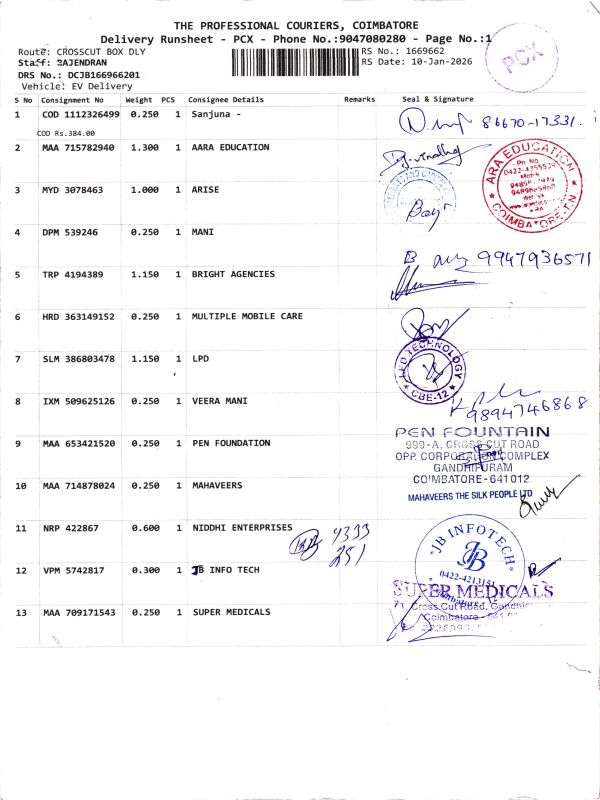 THE PROFESSIONAL COURIERS, COIMBATORE
Delivery Runsheet - PCX - Phone No.:9047080280 - Page No.:1
Route: CROSSCUT BOX DLY
RS No.: 1669662
Staff: RAJENDRAN
RS Date: 10-Jan-2026
DRS No.: DCJB166966201
Vehicle: EV Delivery
PCX
S No Consignment No Weight PCS Consignee Details Remarks Seal & Signature
1 COD 1112326499 0.250 1 Sanjuna - 86670-17331.
COD Rs.384.00
2 MAA 715782940 1.300 1 AARA EDUCATION
ARA EDUCATION
Ph. No
0422-4755539
COIMBATORE-T.N
3 MYD 3078463 1.000 1 ARISE
4 DPM 539246 0.250 1 MANI
B 9947936571
5 TRP 4194389 1.150 1 BRIGHT AGENCIES
6 HRD 363149152 0.250 1 MULTIPLE MOBILE CARE
7 SLM 386803478 1.150 1 LPD
LPD TECHNOLOGY
CBE-12
8 IXM 509625126 0.250 1 VEERA MANI
9894746868
9 MAA 653421520 0.250 1 PEN FOUNDATION
PEN FOUNTAIN
999-A, CROSS CUT ROAD
OPP. CORPORATION COMPLEX
GANDHIPURAM
COIMBATORE-641012
10 MAA 714878024 0.250 1 MAHAVEERS
MAHAVEERS THE SILK PEOPLE LTD
11 NRP 422867 0.600 1 NIDDHI ENTERPRISES
4333
251
12 VPM 5742817 0.300 1 JB INFO TECH
JB INFOTECH
JB
0422-4213151
13 MAA 709171543 0.250 1 SUPER MEDICALS
SUPER MEDICALS
71, Cross Cut Road,
Coimbatore